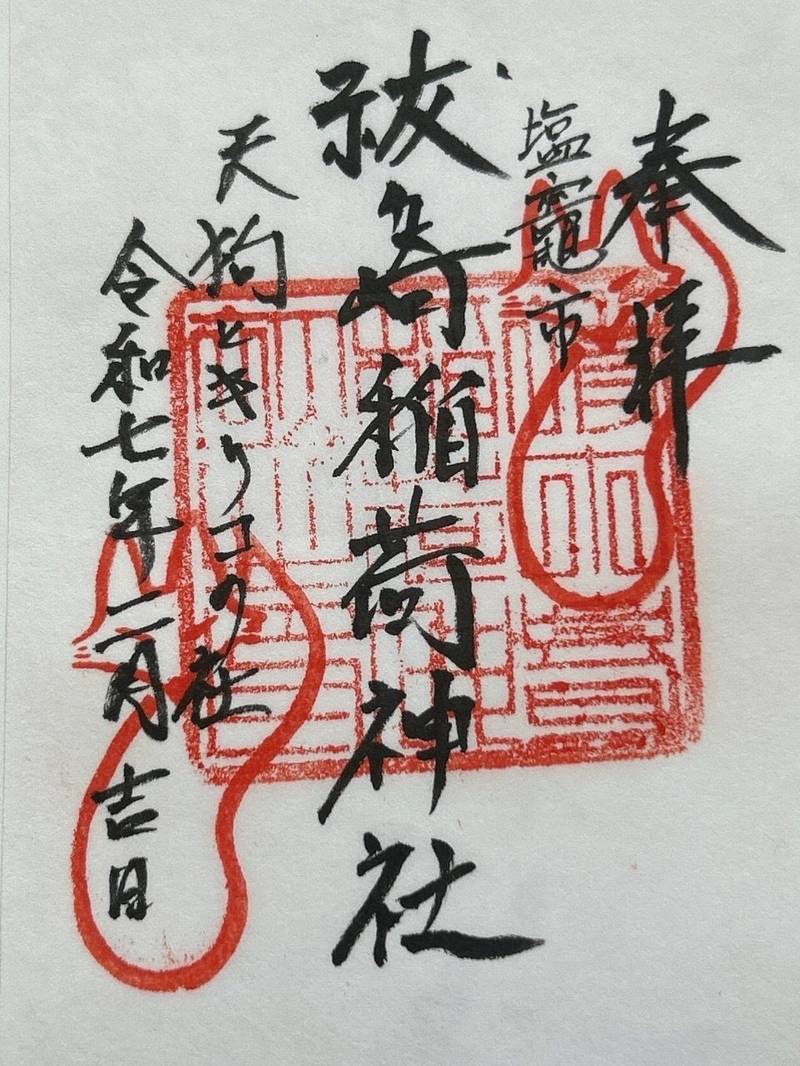 奉拝
塩竈市
祓ヶ崎稲荷神社
天狗とキリコの社
令和七年二月吉日